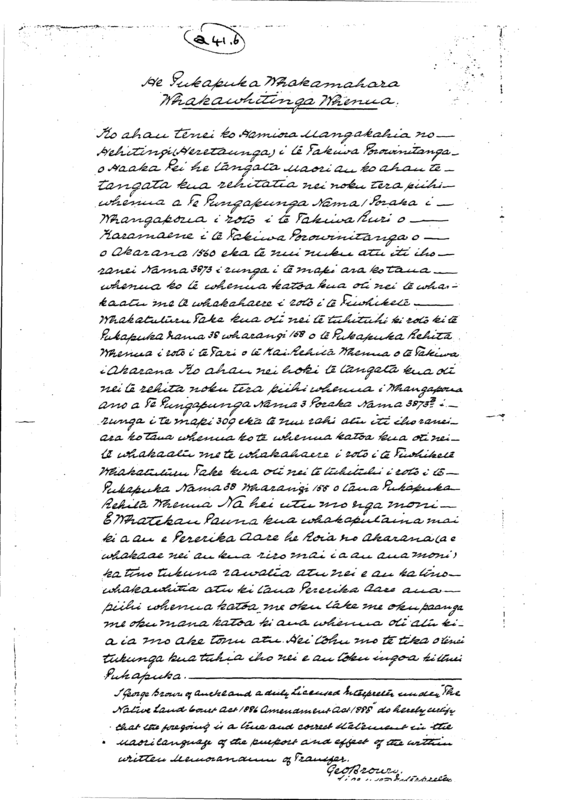 a 41.6
He Pukapuka Whakamahara
Whakawhitinga Whenua.
Ko ahau tenei ko Hamiora Mangakahia no
Hehitingi (Heretaunga) i te Takiwa Porowinitanga
o Haaka Pei he tangata Maori au ko ahau te
tangata kua rehitatia nei noku tera piihi
whenua a Te Pungapunga Nama 1 Poraka i
Whangapoua i roto i te Takiwa Ruri o
Karamaene i te Takiwa Porowinitanga o
o Akarana 1560 eka te nui nuku atu iti iho
ranei Nama 3873 i runga i te mapi ara ko taua
whenua ko te whenua katoa kua oti nei te wha-
kaatu me te whakahaere i roto i te Tiwhikete
Whakatuturu Take kua oti nei te tuhituhi ki roto ki te
Pukapuka Nama 38 wharangi 158 o te Pukapuka Rehita
Whenua i roto i te Tari o te Kai Rehita Whenua o te Takiwa
i Akarana Ko ahau nei hoki te tangata kua oti
nei te rehita noku tera piihi whenua i Whangapoua
ano a Te Pungapunga Nama 3 Poraka Nama 3873 i
runga i te mapi 309 eka te nui rahi atu iti iho ranei
ara ko taua whenua ko te whenua katoa kua oti nei
te whakaatu me te whakahaere i roto i te Tiwhikete
Whakatuturu Take kua oti nei te tuhituhi i roto i te
Pukapuka Nama 38 Wharangi o taua Pukapuka
Rehita Whenua Na hei utu mo nga moni
E Whatekau Pauna kua whakaputaina mai
ki a au e Pererika Aare he Roia no Akarana (a e
whakaae nei au kua riro mai i a au aua moni)
ka tino tukuna rawatia atu nei e au ka tino
whakawhitia atu ki taua Pererika Aare aua
piihi whenua katoa me oku take me oku paanga
me oku mana katoa ki aua whenua oti atu ki
a ia mo ake tonu atu. Hei tohu mo te tika o tenei
tukunga kua tuhia iho nei e au toku ingoa ki tenei
Pukapuka.
I George Brown of Auckland a duly Licensed Interpreter under "The
Native Land Court Act 1886 Amendment Act 1888" do hereby certify
that the foregoing is a true and correct statement in the
Maori language of the purport and effect of the within
written Memorandum of Transfer.
Geo Brown